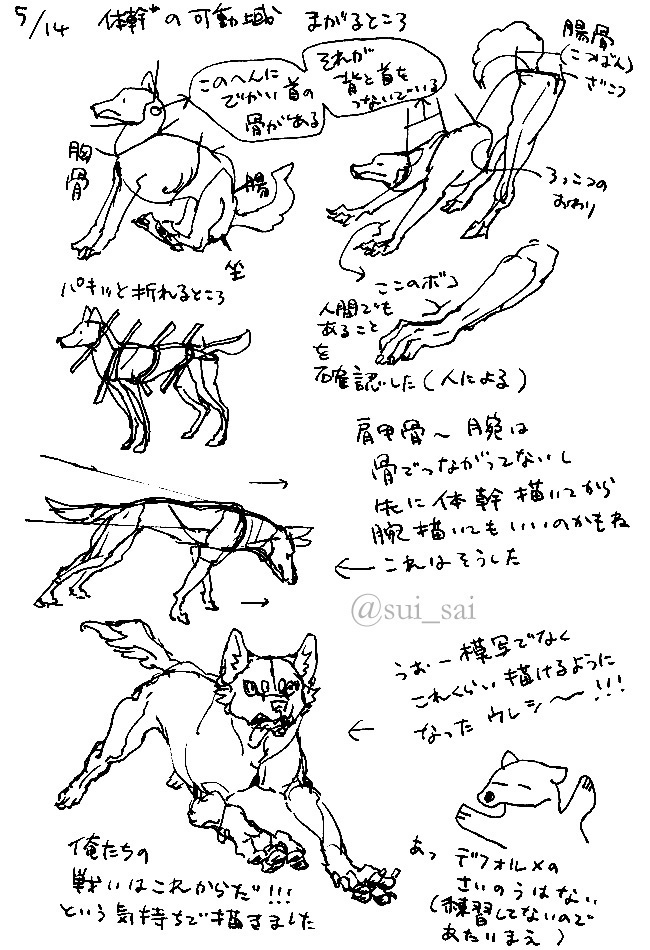 5/14 体幹の可動域 まがるところ
このへんに
でかい首の
骨がある
それが
背と首を
つないでいる
腸骨
(こつばん)
ざこつ
胸
骨
腸
坐
ろっこつの
おわり
パキッと折れるところ
ここのボコ
人間でも
あること
を
確認した(人による)
肩甲骨〜腕は
骨でつながってないし
先に体幹描いてから
腕描いてもいいのかもね
これはそうした
@sui_sai
うおー模写でなく
これくらい描けるように
なったウレシ〜〜!!!
俺たちの
戦いはこれからだ!!!
という気持ちで描きました
あっ デフォルメの
さいのうはない
(練習してないので
あたいまえ)